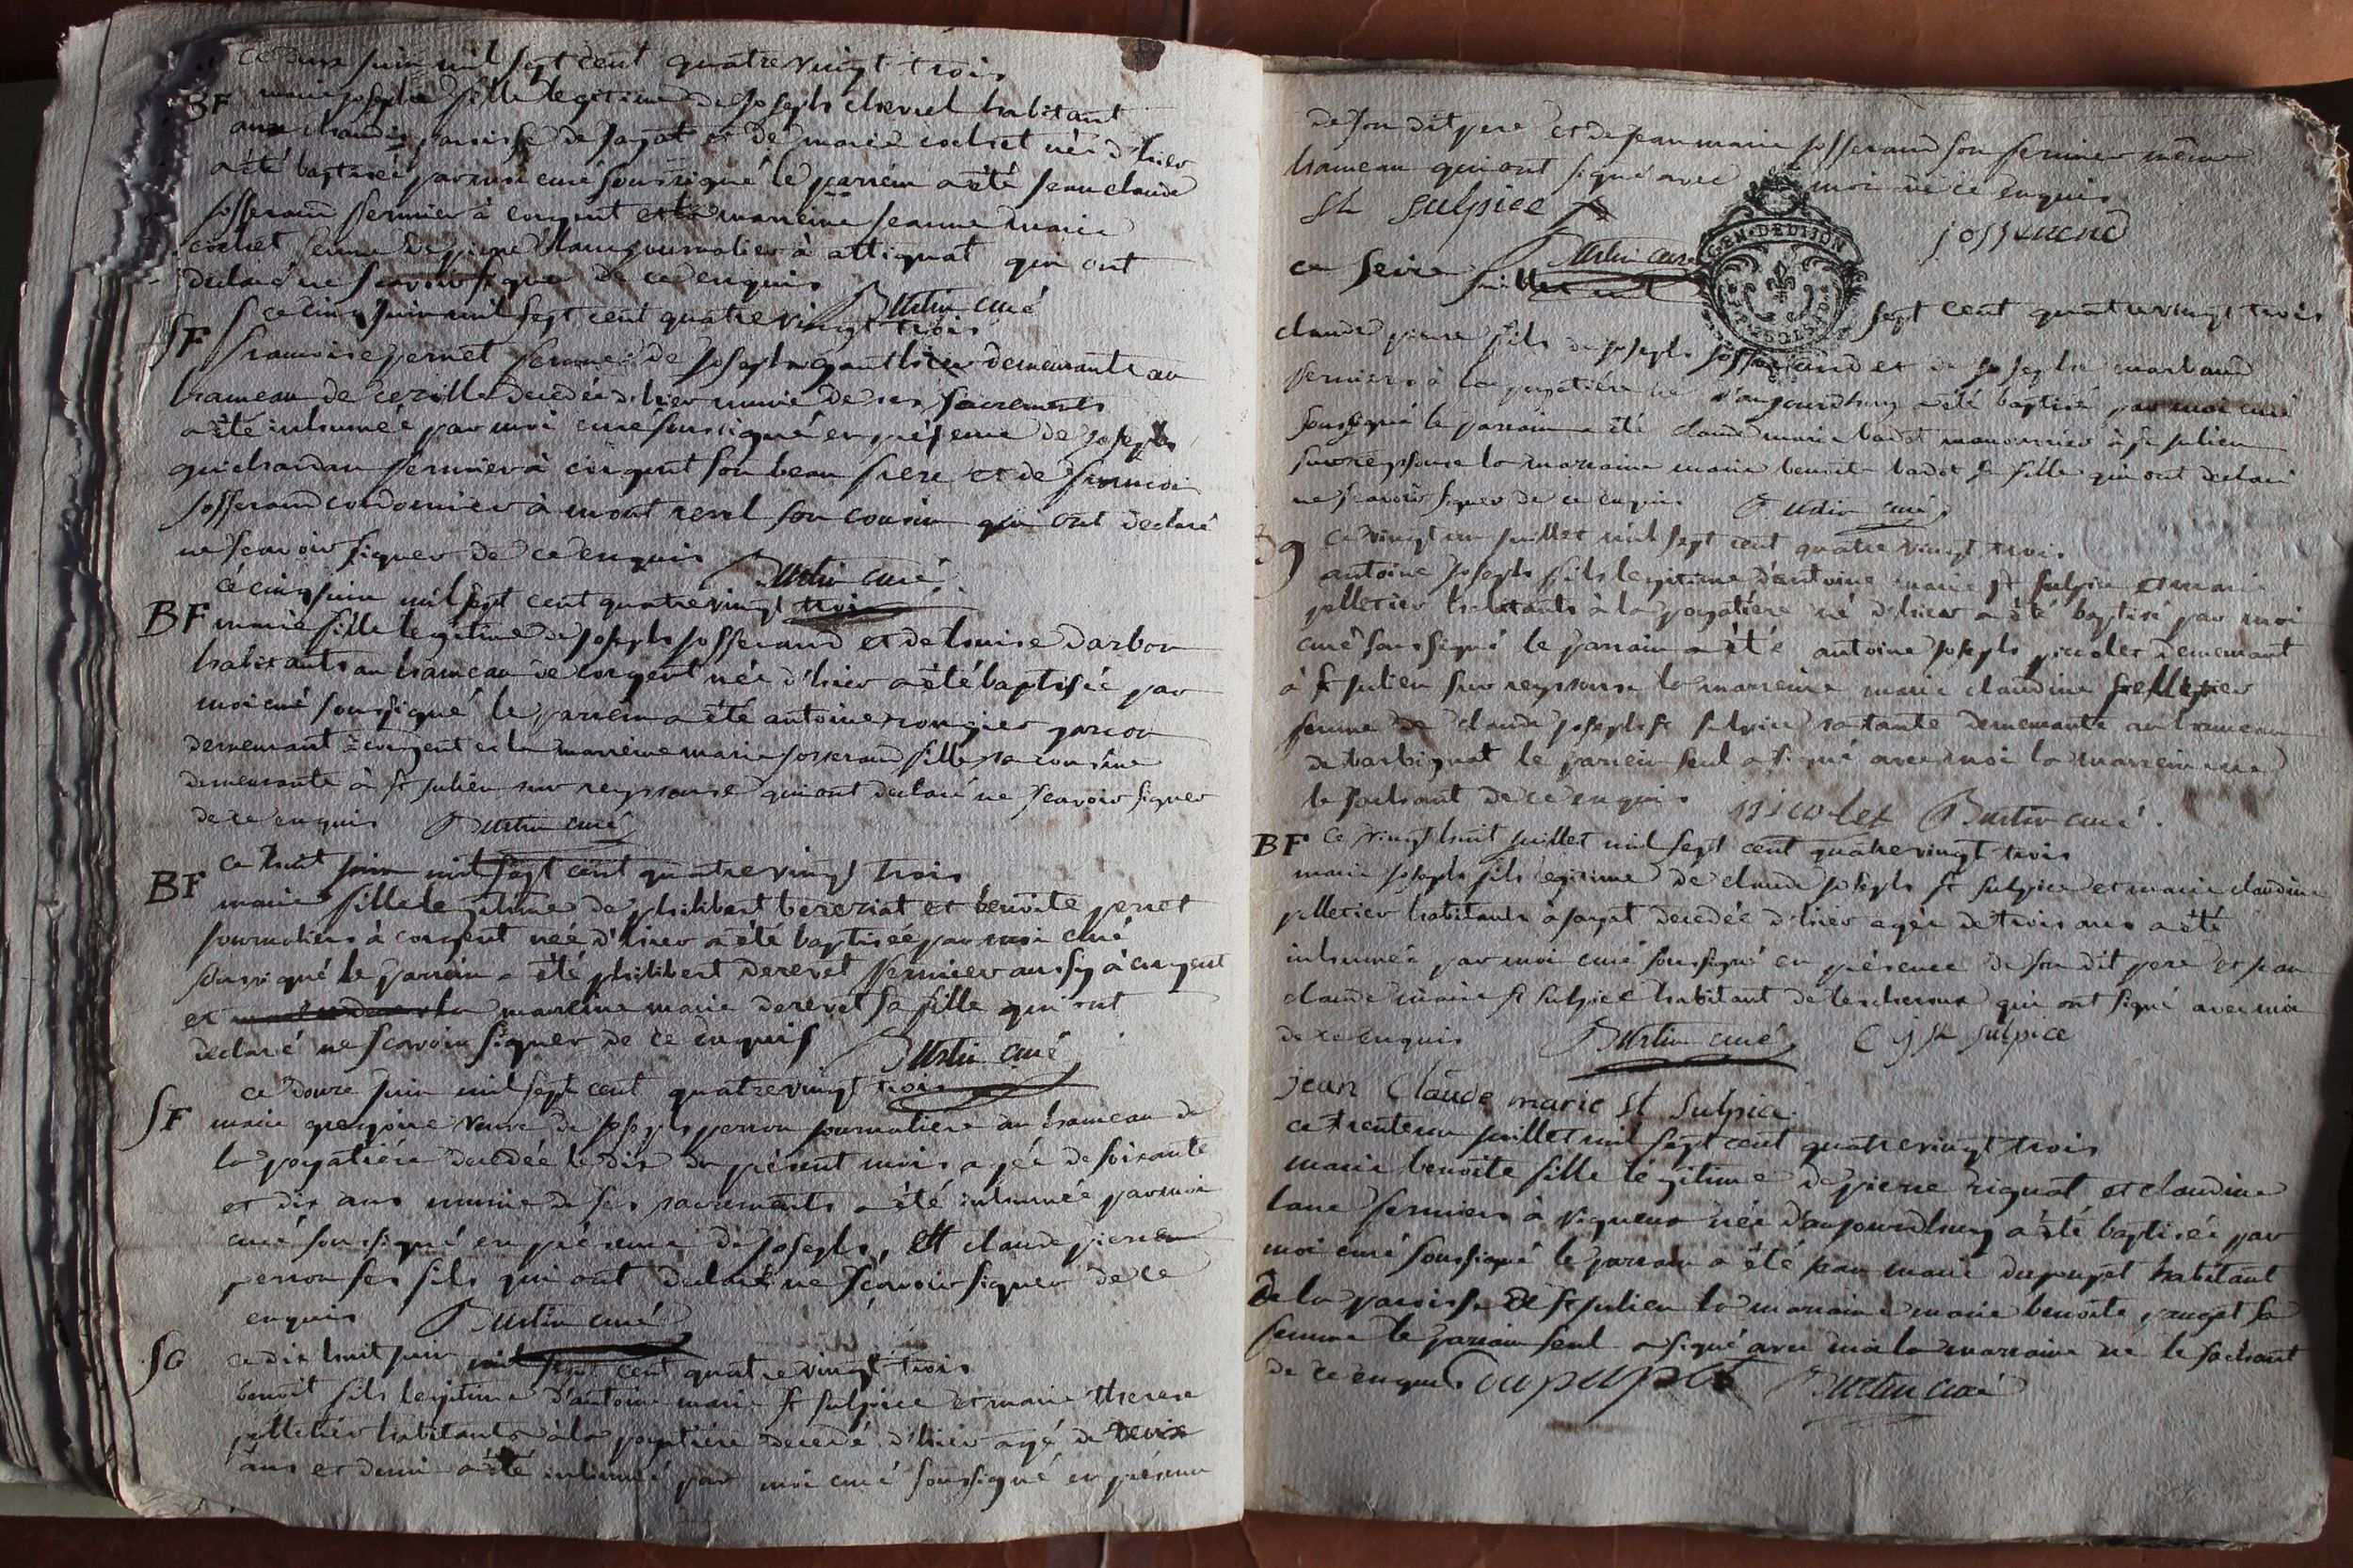 ce deux juin mil sept cent quatre vingt trois
BF marie josephe fille legitime de joseph chevrel habitant
aux chaudis paroisse de jayat et de marie cochet née d'hier
a été baptisée par moi curé soussigné le parrein a été jean claude
josserand fermier à congent et la marreine jeanne marie
cochet femme de pierre journalier à attignat qui ont
declaré ne scavoir signer de ce enquis Burtin curé
SF ce cinq juin mil sept cent quatre vingt trois
francoise pernet femme de joseph gauthier demeurante au
hameau de cezille decedée d'hier munie de ses sacrements
a été inhumée par moi curé soussigné en présence de joseph
guichardan fermier à congent son beau frere et de francois
josserand cordonnier à mont revel son cousin qui ont declaré
ne scavoir signer de ce enquis Burtin curé
ce cinq juin mil sept cent quatre vingt trois
BF marie fille legitime de joseph josserand et de louise darbon
habitants au hameau de congent née d'hier a été baptisée par
moi curé soussigné le parrein a été antoine rongier garcon
demeurant à congent et la marreine marie josserand fille sa cousine
demeurante à st julien sur reyssouse qui ont declaré ne scavoir signer
de ce enquis Burtin curé
ce huit juin mil sept cent quatre vingt trois
BF marie fille legitime de philibert bereziat et benoite perret
journaliers à congent née d'hier a été baptisée par moi curé
soussigné le parrein a été philibert derevet fermier aussy à congent
et la marreine marie derevet sa fille qui ont
declaré ne scavoir signer de ce enquis Burtin curé
ce douze juin mil sept cent quatre vingt trois
SF marie gregoire veuve de joseph perron journaliere au hameau de
la poyatiere decedée le dix du présent mois agée de soixante
et dix ans munie de ses sacrements a été inhumée par moi
curé soussigné en présence de joseph, et claude pierre
perron ses fils qui ont declaré ne scavoir signer de ce
enquis Burtin curé
SG ce dix huit juin mil sept cent quatre vingt trois
benoit fils legitime d'antoine marie st sulpice et marie therese
pelletier habitants à la poyatiere decedé d'hier agé de deux
ans et demi a été inhumé par moi curé soussigné en présence
de son dit pere et de jean marie josserand son fermier même
hameau qui ont signé avec moi de ce enquis
st sulpice josserand
Burtin curé
GEN. DE DIJON
ce seize juillet mil sept cent quatre vingt trois
claude pierre fils de joseph josserand et de josephe marland
fermiers à la poyatiere né d'aujourdhuy a été baptisé par moi curé
soussigné le parrain a été claude marie badot manouvrier à st julien
sur reyssouse la marraine marie benoite badot sa fille qui ont declaré
ne scavoir signer de ce enquis Burtin curé
ce vingt un juillet mil sept cent quatre vingt trois
antoine joseph fils legitime d'antoine marie st sulpice et marie
pelletier habitants à la poyatiere né d'hier a été baptisé par moi
curé soussigné le parrain a été antoine joseph nicolet demeurant
à st julien sur reyssouse la marreine marie claudine pelletier
femme de claude joseph st sulpice sa tante demeurante au hameau
de barbignat le parrein seul a signé avec moi la marreine ne
le sachant de ce enquis nicolet Burtin curé.
BF ce vingt huit juillet mil sept cent quatre vingt trois
marie joseph fils legitime de claude joseph st sulpice et marie claudine
pelletier habitants à jayat decedée d'hier agée de trois ans a été
inhumée par moi curé soussigné en présence de son dit pere et jean
claude marie st sulpice habitant de lescheroux qui ont signé avec moi
de ce enquis Burtin curé C j st sulpice
jean Claude marie st Sulpice
ce trente un juillet mil sept cent quatre vingt trois
marie benoite fille légitime de pierre rignat et claudine
lane fermiers à vigneux née d'aujourdhuy a été baptisée par
moi curé soussigné le parrain a été jean marie dupupet habitant
de la paroisse de st julien la marraine marie benoite pauget sa
femme le parrain seul a signé avec moi la marraine ne le sachant
de ce enquis Dupupet Burtin curé